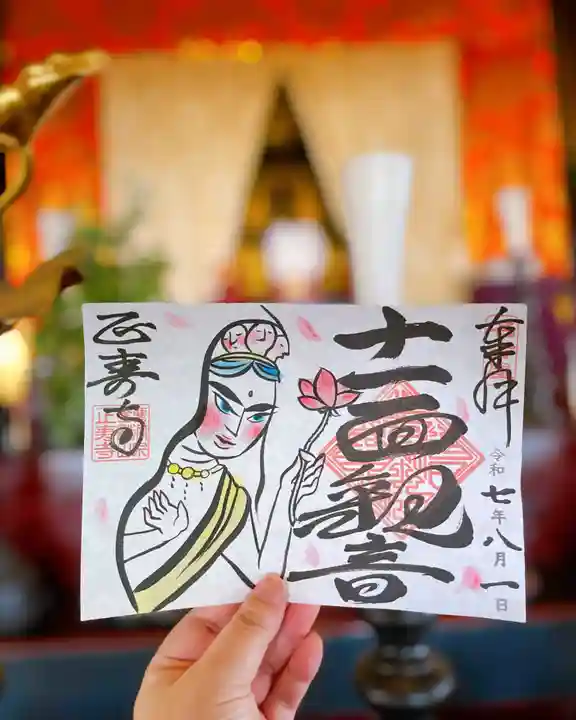 奉拝
令和七年八月一日
十一面観音
正寿寺